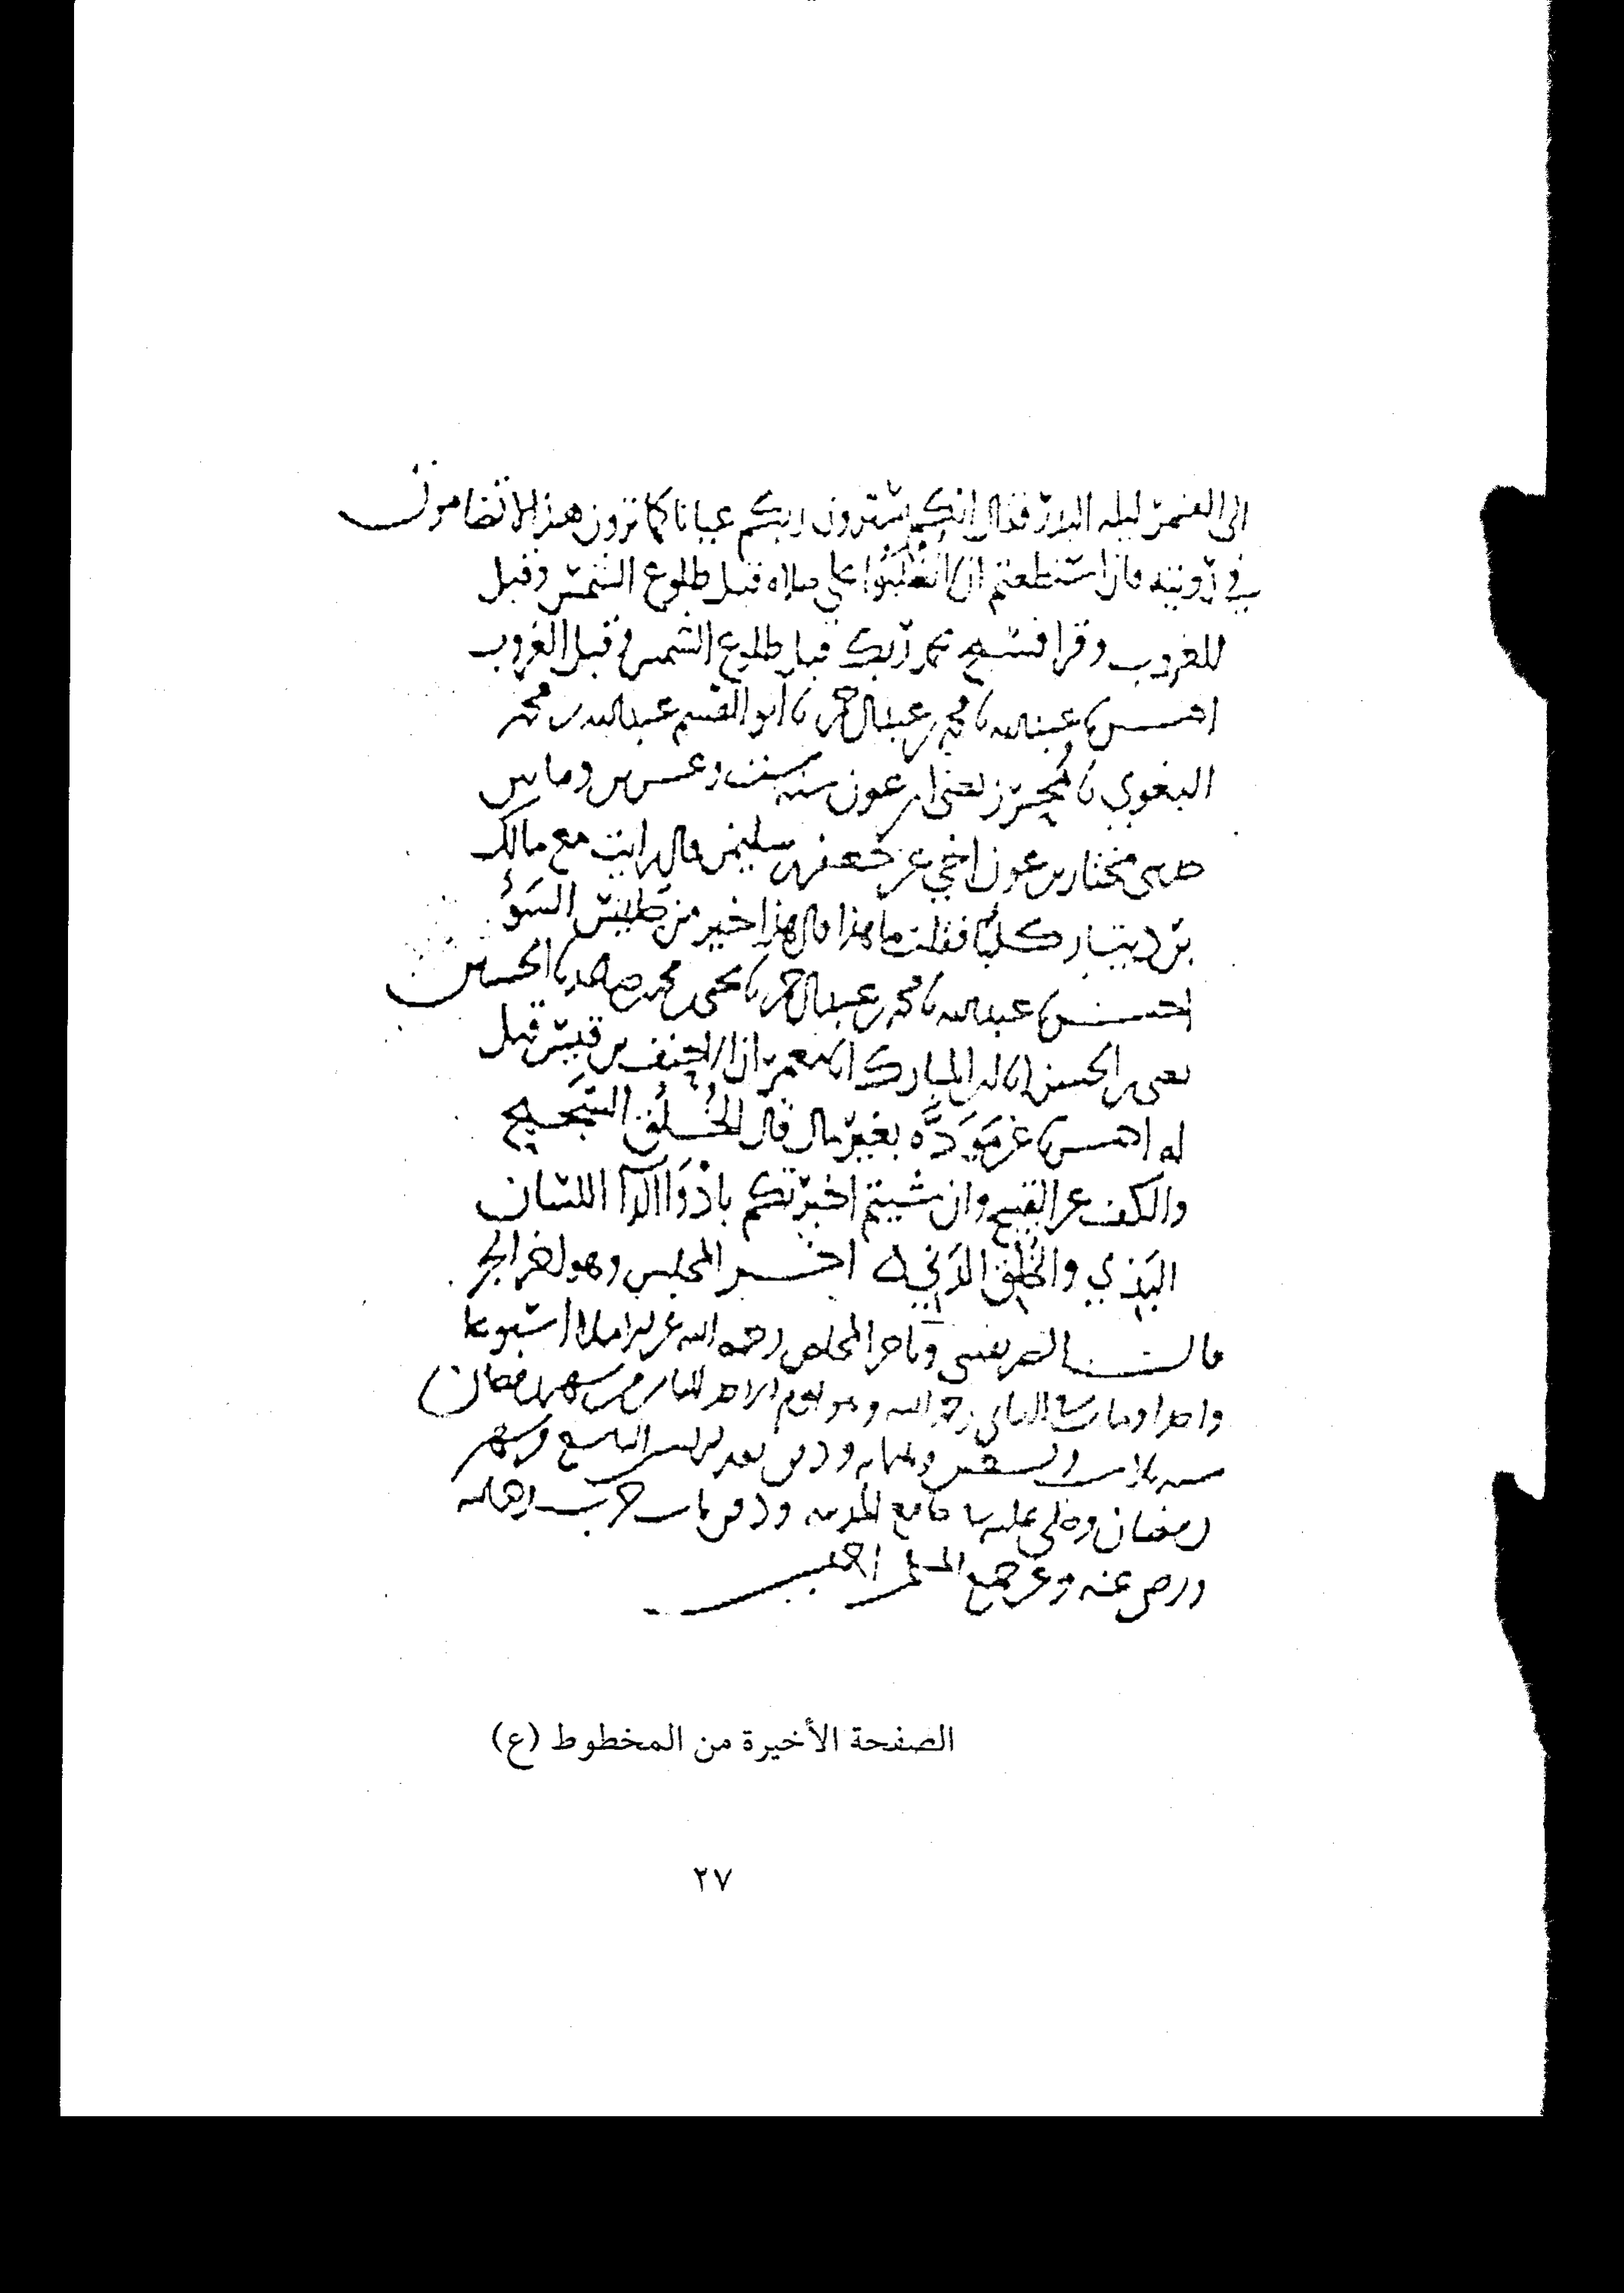 الى القمر ليله البدر فقال انكم سترون ربكم عيانا كما ترون هذا لا تضامون
في رؤيته فان استطعتم ان لا تغلبوا على صلاه قبل طلوع الشمس وقبل
الغروب وقرا فسبح بحمد ربك قبل طلوع الشمس وقبل الغروب
عبدالله نا محمد بن عبدالرحمن نا ابو القسم عبدالله بن محمد
البغوي نا محرز يعني ابن عون سنه ست وعسرين وماتين
حدثني مختار بن عون اخي عن جعفر بن سليمن قال رايت مع مالك
بن دينار كلبا فقلت ما هذا قال هذا خير من جليس السوء
عبدالله نا محمد بن عبدالرحمن نا يحيى بن محمد بن صاعد نا الحسين
يعني بن الحسن انا ابن المبارك انا معمر ان الاحنف بن قيس قيل
له عن مودة بغير مال قال الخلق السجيح
والكف عن القبيح وان شيتم اخبرتكم بادوا الدا اللسان
البذي والخلق الدني ه اخر المجلس وهو اخر الجز
المخلص رحمه الله املا اسبوعا
واحدا ومات رحمه الله وهو يوم الاحد من شهر رمضان
رمضان وصلى عليه جامع المدينه ودفن باب حرب رحمه الله
ورضي عنه وعن جميع المسلمين اجمعين
الصفحة الأخيرة من المخطوط (ع)
٢٧